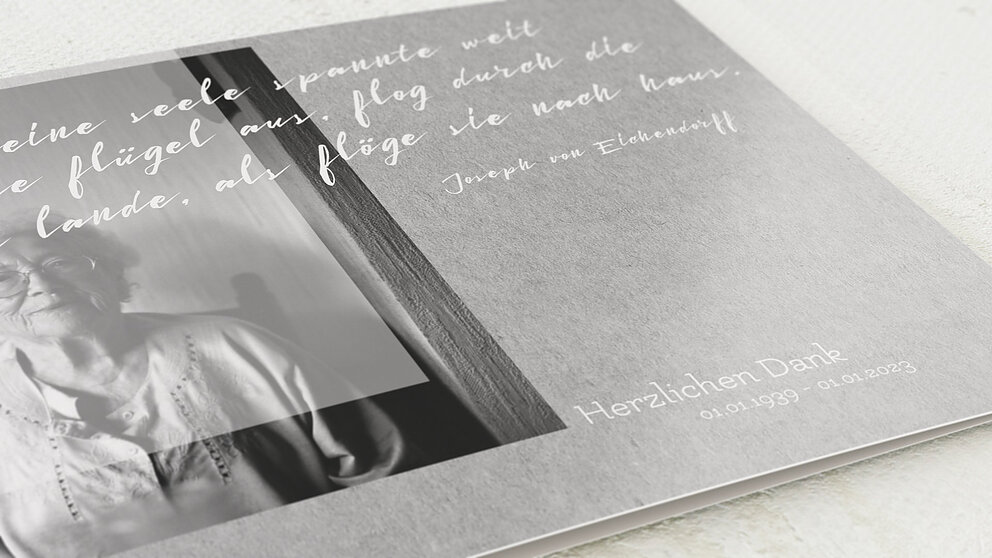 eine seele spannte weit
e flügel aus, flog durch die
lande, als flöge sie nach haus.
Joseph von Eichendorff
Herzlichen Dank
01.01.1939 - 01.01.2023